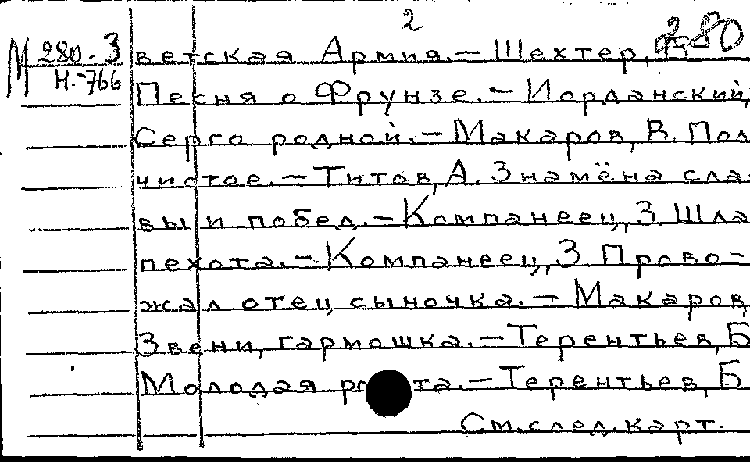 2
280
М 280-3
Н-766
ветская Армия. — Шехтер,
Песня о Фрунзе. — Иорданский,
Серго родной. — Макаров, В. Пол
чистое. — Титов, А. Знамёна сла-
вы и побед. — Компанеец, З. Шла
пехота. — Компанеец, З. Прово-
жал отец сыночка. — Макаров,
Звени, гармошка. — Терентьев, Б
Молодая — Терентьев, Б
См. след. карт.